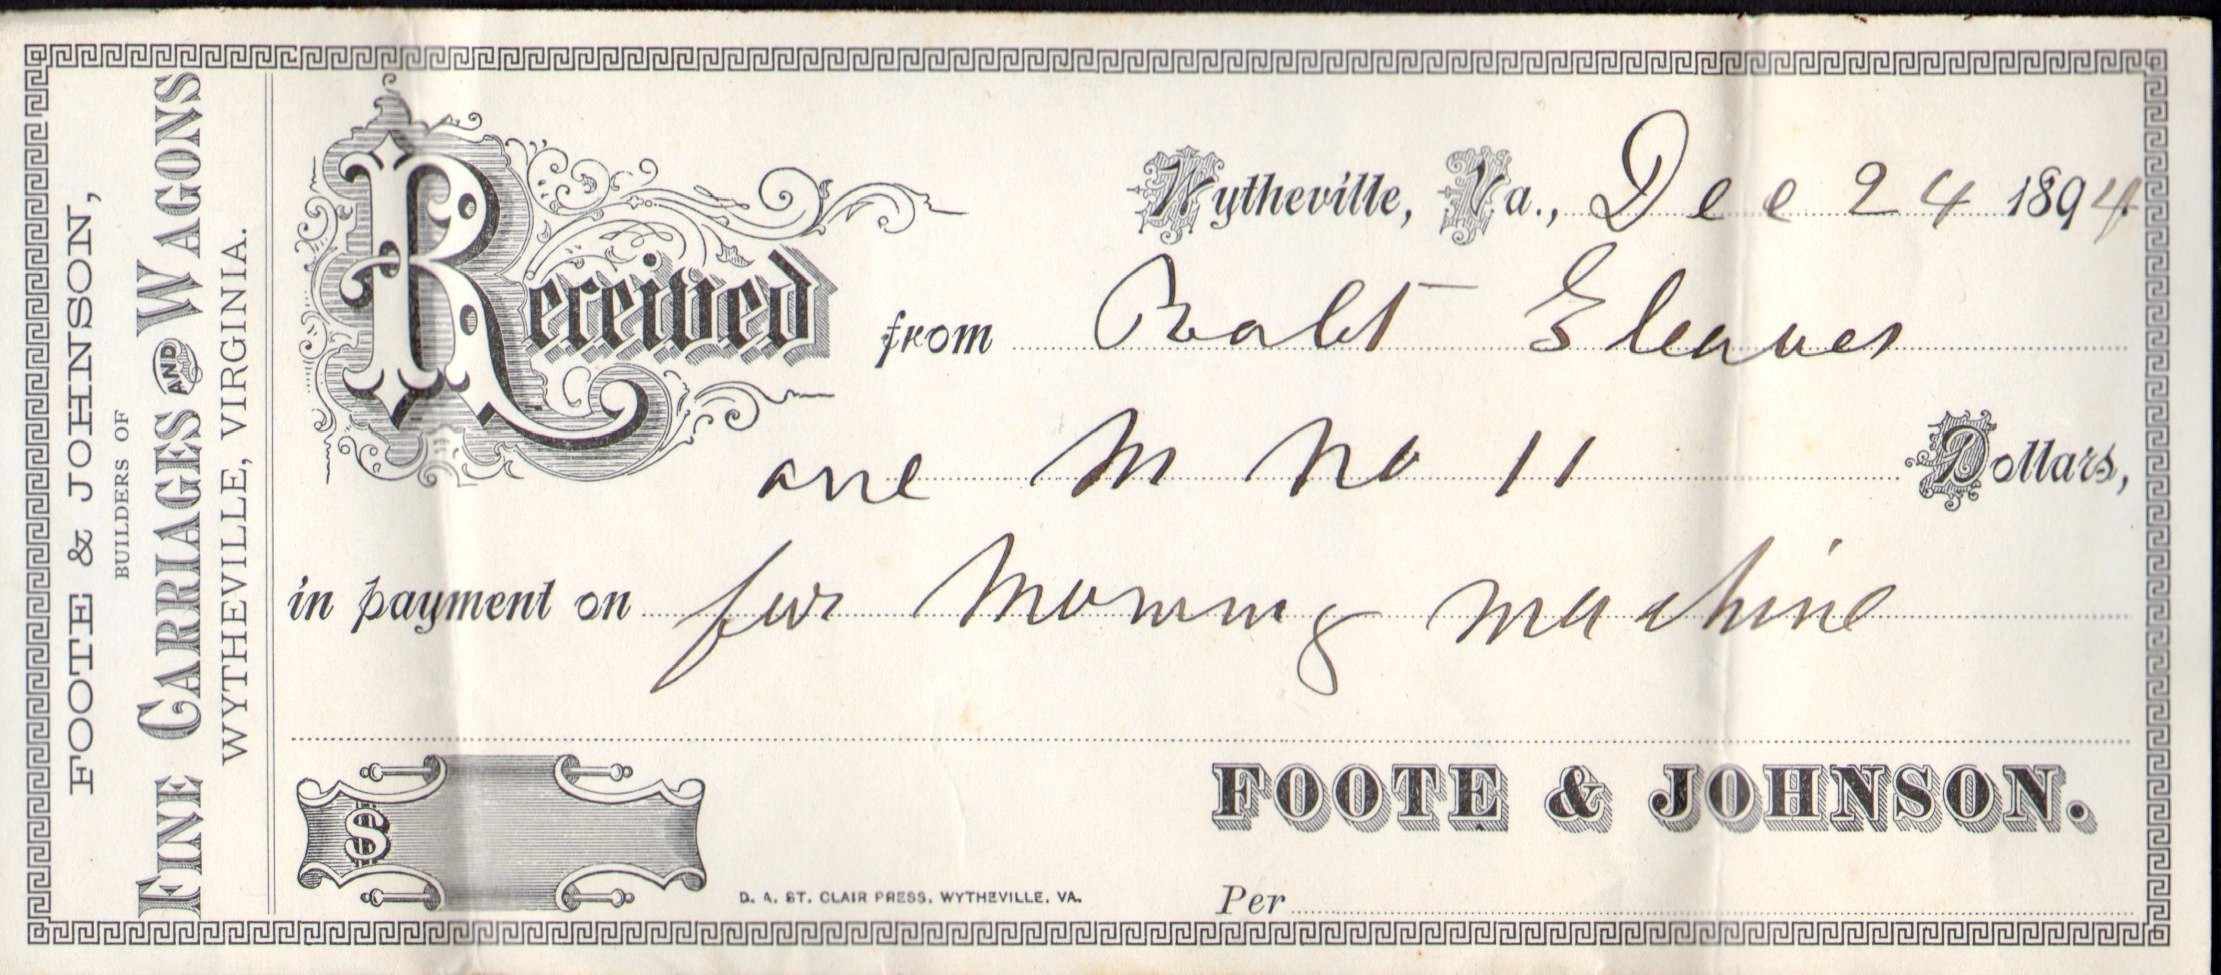 FOOTE & JOHNSON,
BUILDERS OF
FINE CARRIAGES AND WAGONS
WYTHEVILLE, VIRGINIA.
Wytheville, Va., Dec 24 1894
Received from Robt Gleaves
one M No 11 Dollars,
in payment on for Mowing Machine
$
FOOTE & JOHNSON.
D. A. ST. CLAIR PRESS, WYTHEVILLE, VA.
Per